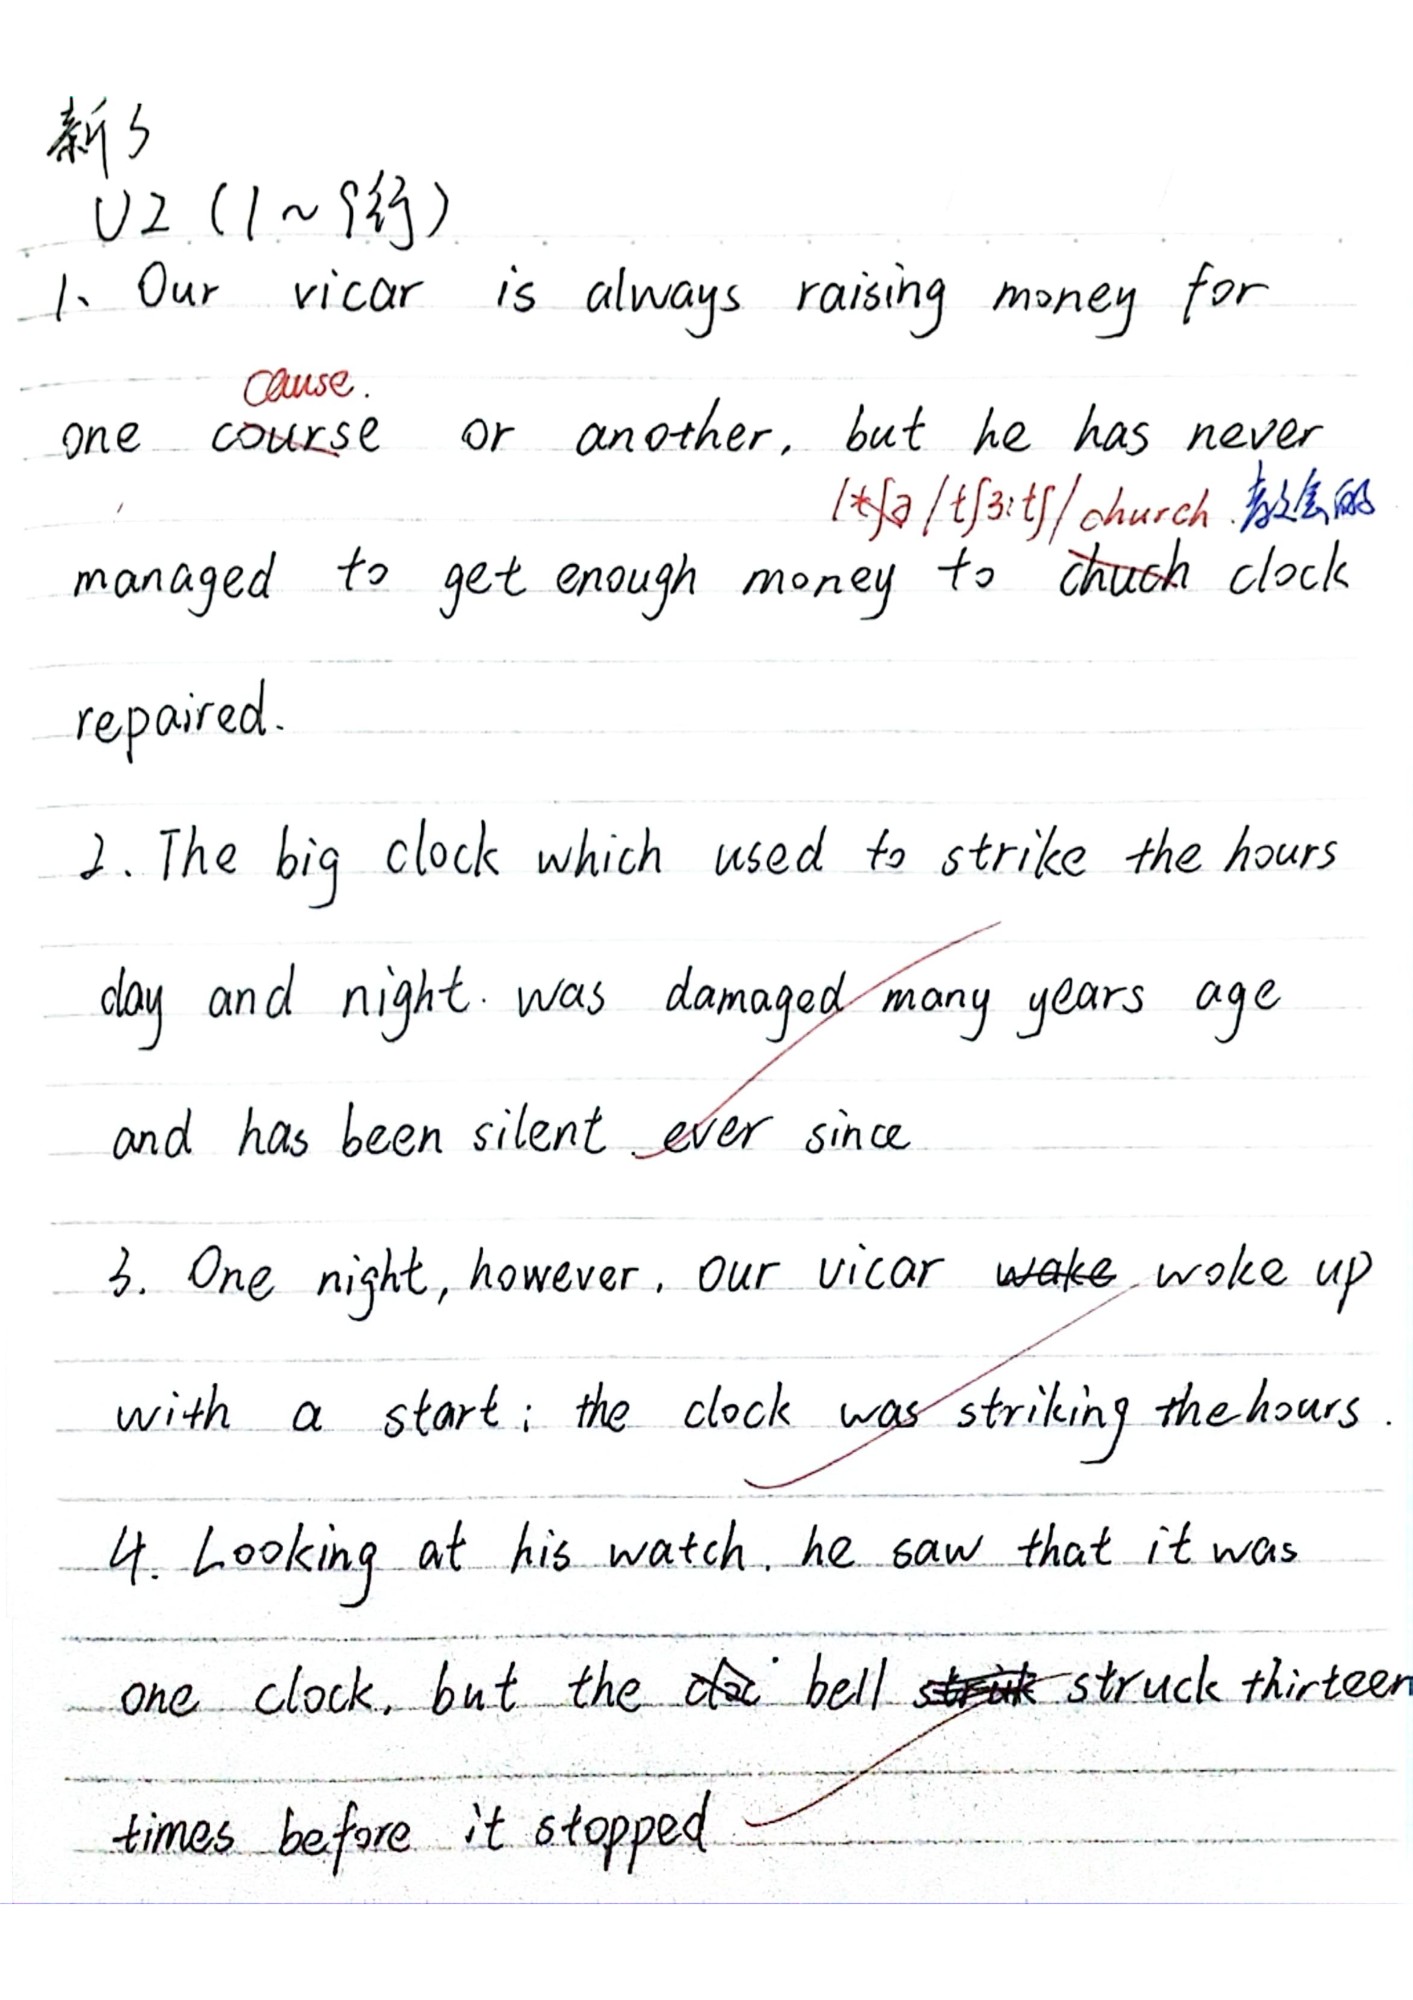 新3
U2 (1~9行)
1、Our vicar is always raising money for
cause.
one course or another, but he has never
/tʃɜːtʃ/ church. 教会的
managed to get enough money to chuch clock
repaired.
2. The big clock which used to strike the hours
day and night. was damaged many years age
and has been silent ever since
3. One night, however, our vicar wake woke up
with a start: the clock was striking the hours.
4. Looking at his watch, he saw that it was
one clock, but the bell struck thirteen
times before it stopped